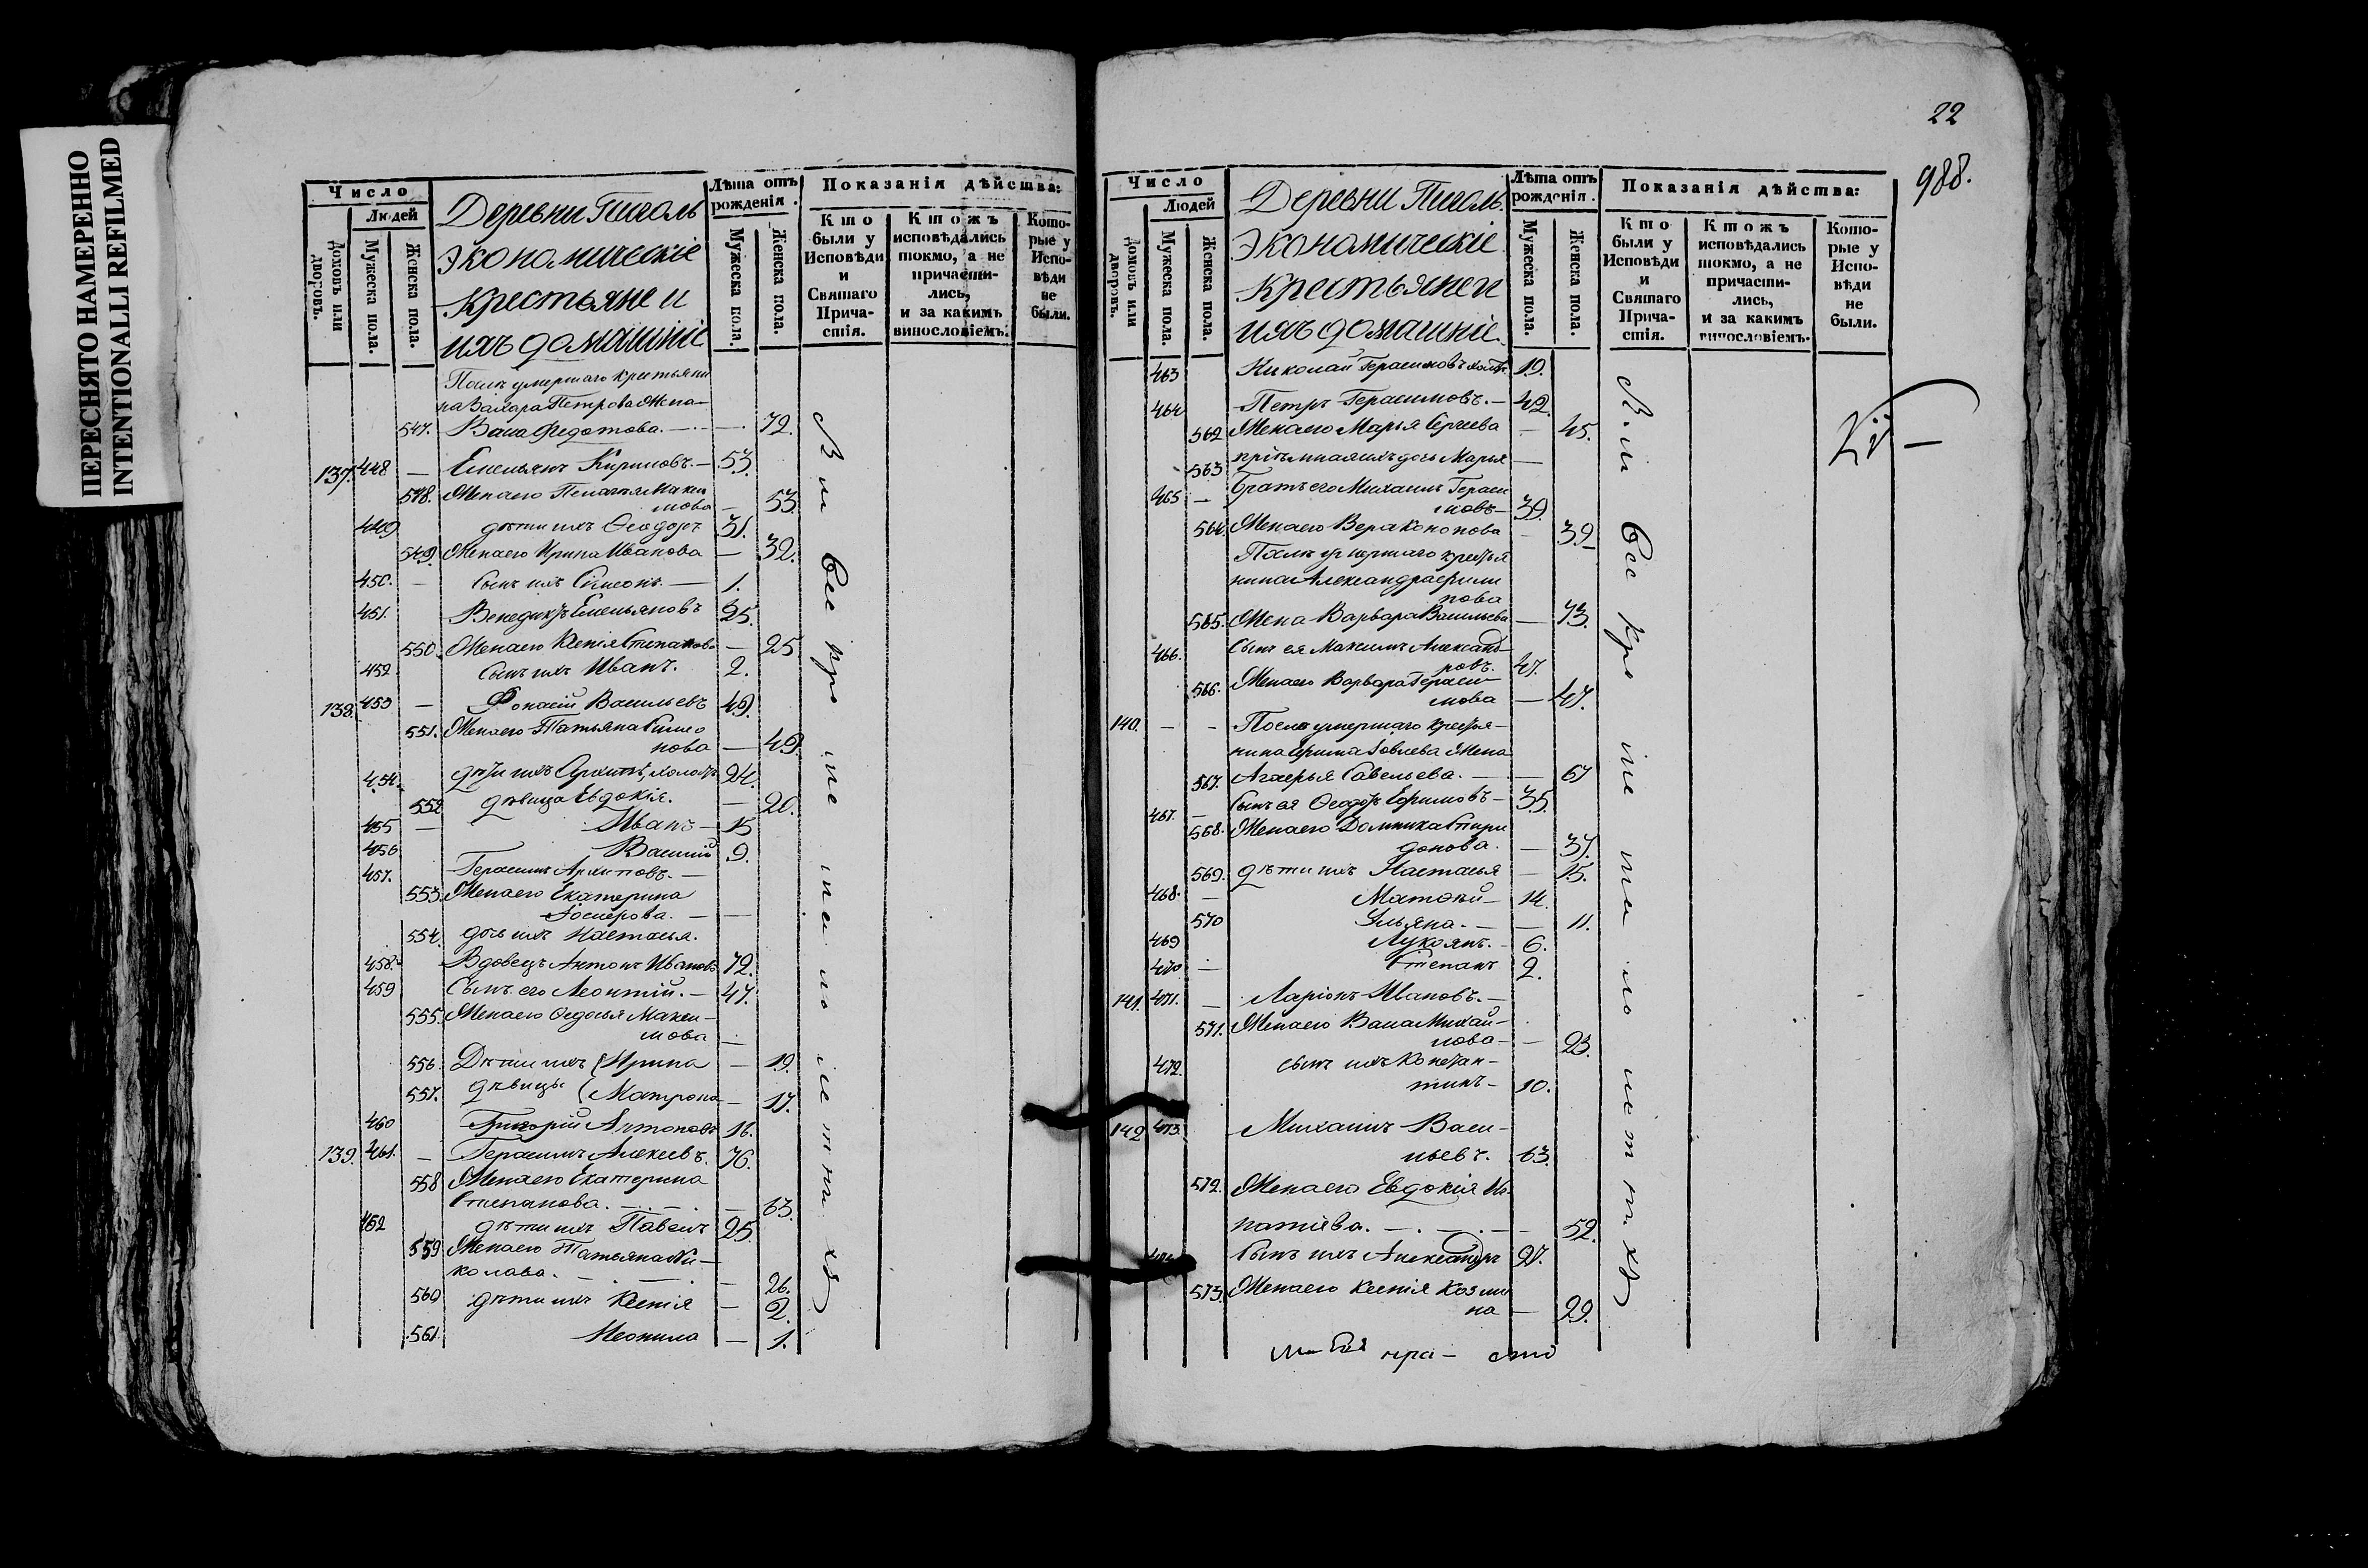 ПЕРЕСНЯТО НАМЕРЕННО
INTENTIONALLI REFILMED
Число
Людей
Домовъ или дворовъ.
Мужеска пола.
Женска пола.
Деревни Пиголь
экономическіе
крестьяне и
ихъ домашніе
Лѣта отъ рожденія.
Мужеска пола.
Женска пола.
Показанія дѣйства:
Кто были у Исповѣди и Святаго Причастія.
Ктожъ исповѣдались токмо, а не причастились, и за какимъ винословіемъ.
Которые у Исповѣди не были.
Послѣ умершаго крестьяни
на Захара Петрова Жена
547. Васа Федотова. — 72.
137. 448 — Емельянъ Кириловъ. — 53.
548. Жена его Пелагія Макси
мова — 53.
449 дѣти ихъ Ѳеодоръ 31.
549. Жена его Ирина Иванова — 32.
450. — сынъ ихъ Симеонъ. — 1.
451. Венедиктъ Емельяновъ 25.
550. Жена его Ксенія Степанова — 25
452 сынъ ихъ Иванъ. 2.
138. 453 — Васильевъ 49.
551. Жена его Татьяна Симео
нова — 49.
454. дѣти ихъ Архипъ, холостъ 24.
552 дѣвица Евдокія. — 20.
455 — Иванъ — 15
456 Василій 9.
457. Герасимъ Архиповъ. —
553. Жена его Екатерина
— —
554. дочь ихъ Настасья.
458. Вдовецъ Антонъ Ивановъ 72.
459 Сынъ его Леонтій. — 47.
555. Жена его Ѳедосья Макси-
мова —
556. Дѣти ихъ (Ирина — 19.
557. дѣвицы (Матрона — 17.
460 Григорій Антоновъ 16.
139. 461. — Герасимъ Алексѣевъ. 76.
558 Жена его Екатерина
Степанова. — 63.
462 дѣти ихъ Павелъ 25.
559 Жена его Татьяна Ни-
колаева. — 26.
560 дѣти ихъ Ксенія — 2.
561. Неонила — 1.
22
988.
Число
Людей
Домовъ или дворовъ.
Мужеска пола.
Женска пола.
Деревни Пиголь.
экономическіе
крестьяне и
ихъ домашніе.
Лѣта отъ рожденія.
Мужеска пола.
Женска пола.
Показанія дѣйства:
Кто были у Исповѣди и Святаго Причастія.
Ктожъ исповѣдались токмо, а не причастились, и за какимъ винословіемъ.
Которые у Исповѣди не были.
463 Николай Герасимовъ холост. 19.
464 Петръ Герасимовъ. — 42.
562 Жена его Марья Сергеева — 45.
563 пріемная ихъ дочь Марья —
465 — Братъ его Михаилъ Гераси
мовъ — 39.
564. Жена его Вера Кононова — 39
Послѣ умершаго крестья
нина Александра Фили
пова
565. Жена Варвара Васильева — 73.
466. Сынъ ея Максимъ Александ-
ровъ. 47.
566. Жена его Варвара Гераси
мова — 47.
140. — — После умершаго крестья-
нина Ефима Жена
567. Савельева. — 67
467. — Сынъ ея Ѳеодоръ Ефимовъ — 35.
568. Жена его Домника Спири
донова. — 37.
569. дѣти ихъ Настасья — 15.
468. — Матвѣй — 14.
570 Ульяна. — — 11.
469 Лукоянъ. — 6.
470 — Степанъ 2.
141. 471. — Ларіонъ Ивановъ. —
571. Жена его Васа Михай-
лова — — 23.
472. сынъ ихъ Констан-
тинъ — 10.
142 473. Михаилъ Васи-
льевъ. 63.
572. Жена его Евдокія Иг-
натіева. — 52.
сынъ ихъ Александръ 27.
573. Жена его Ксенія Козми
на — 29.